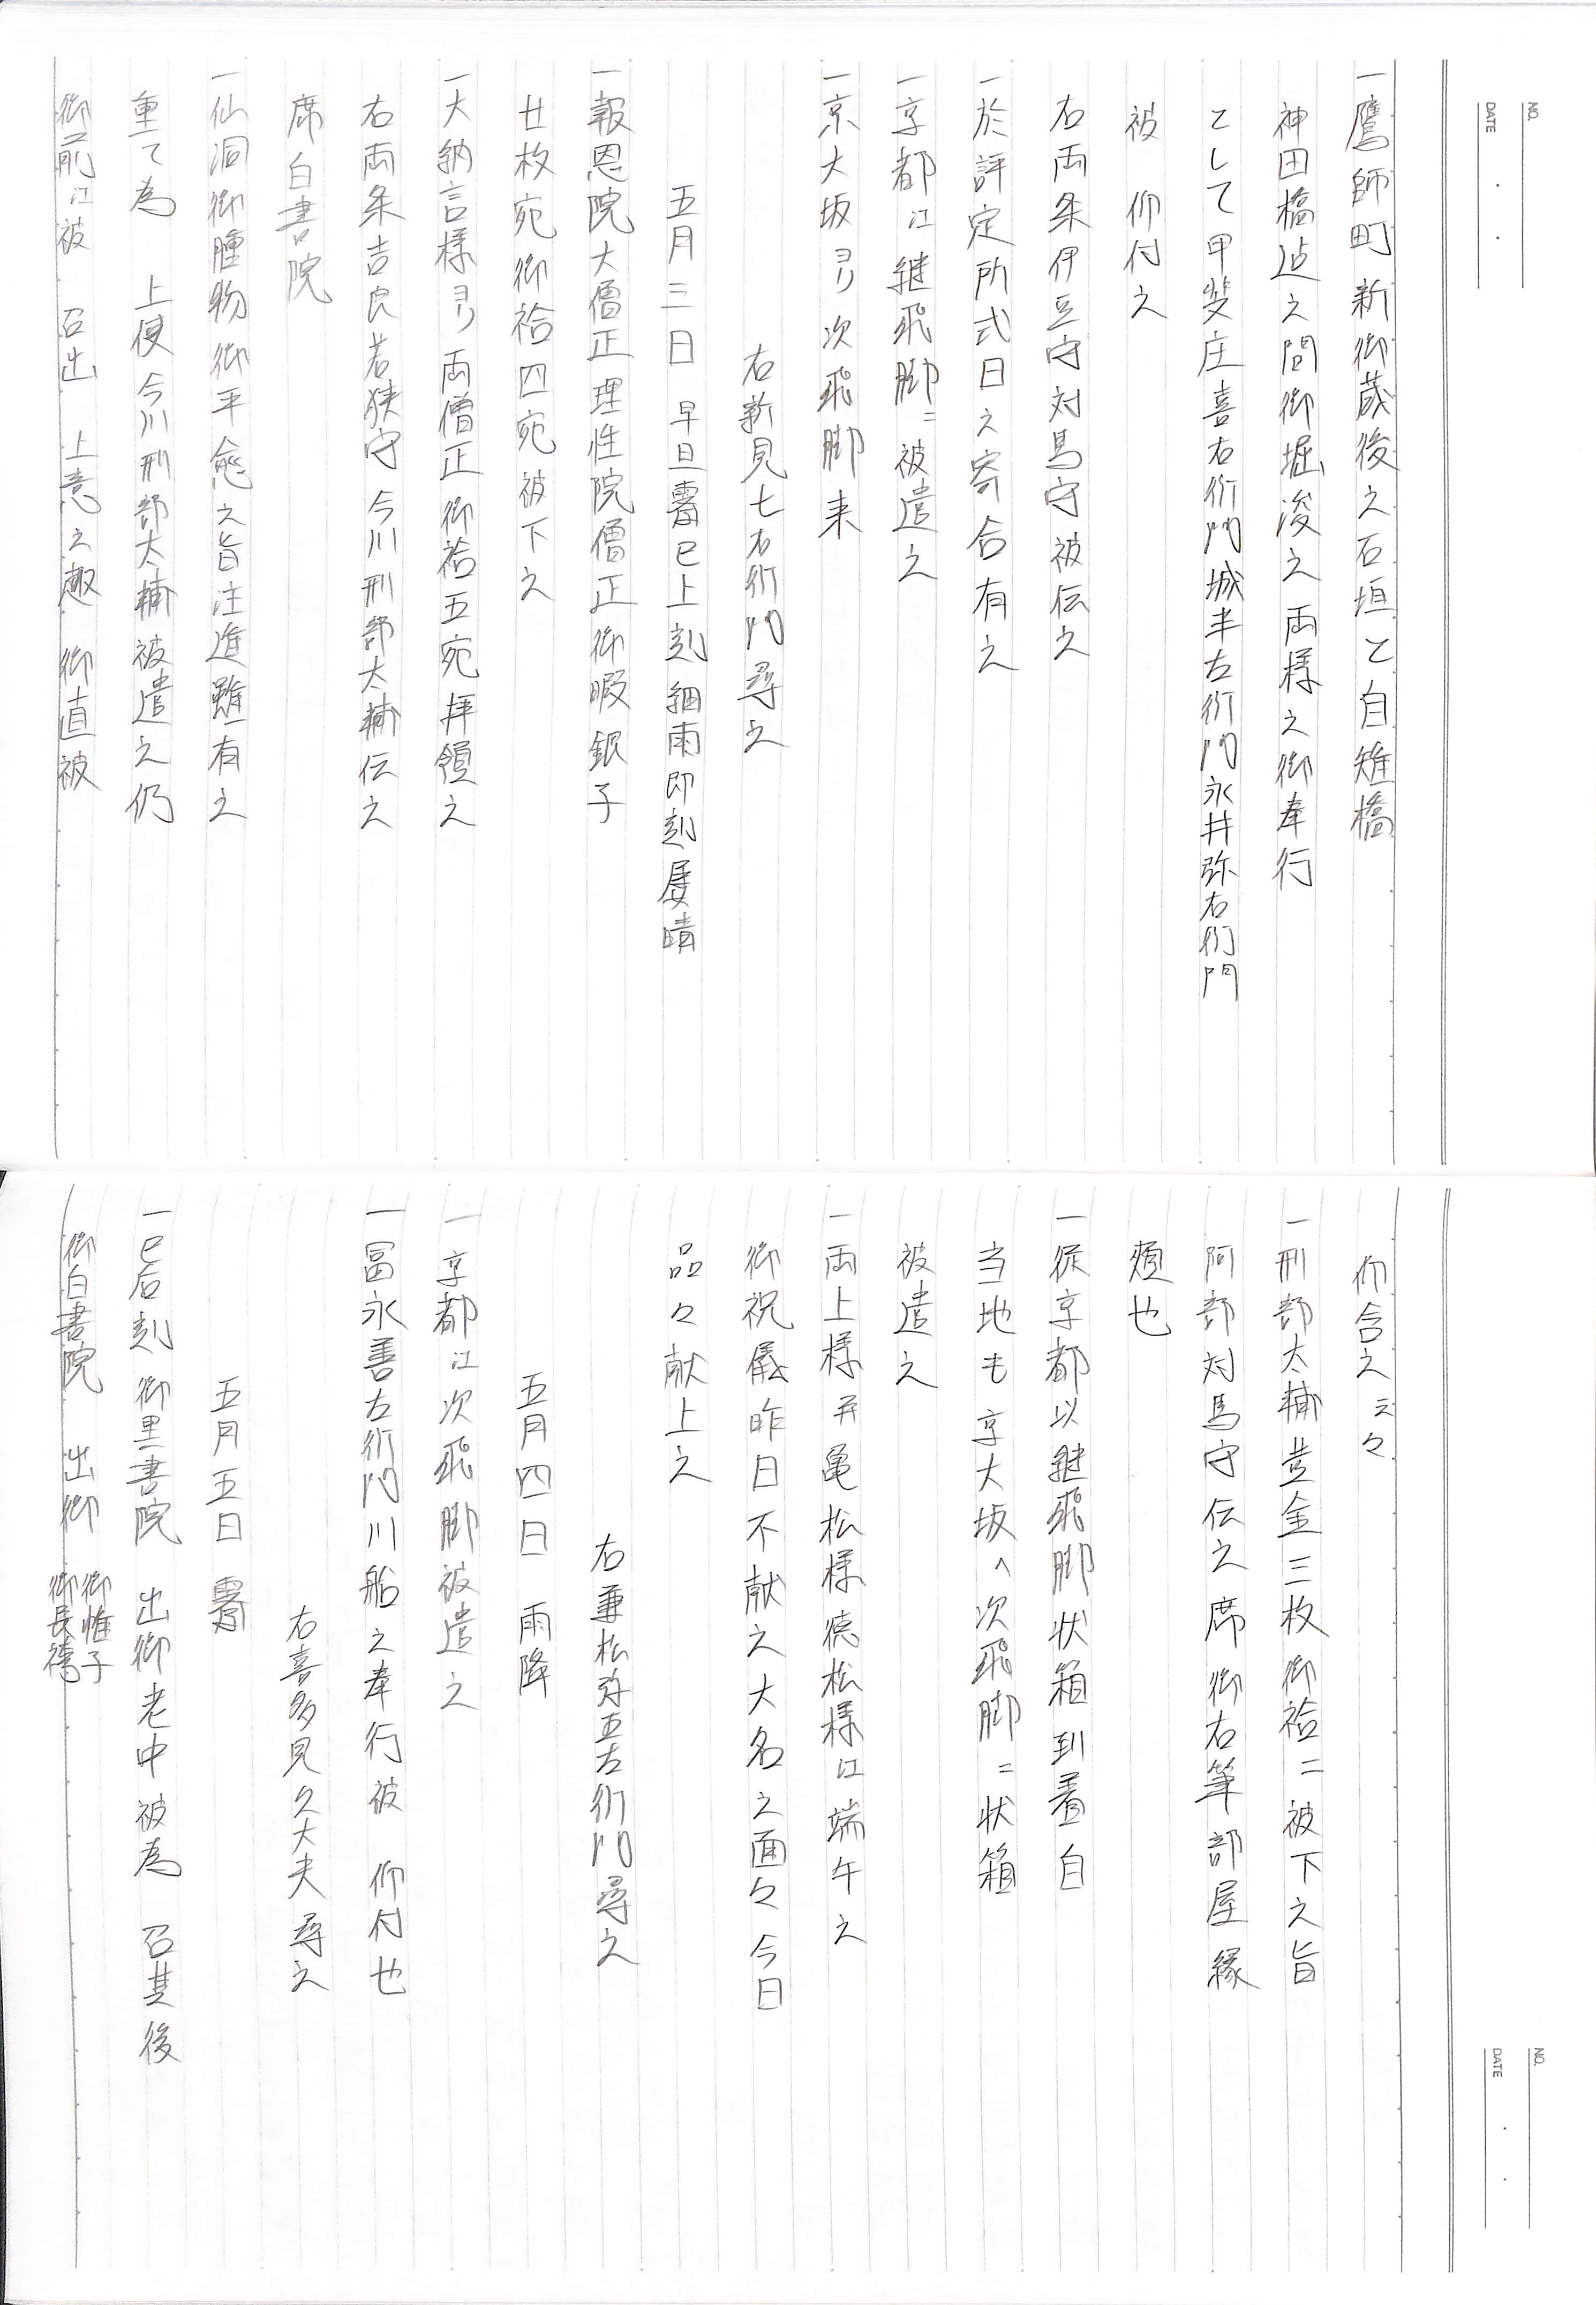 NO.
DATE
一鷹師町新御蔵後之石垣と自雉橋
神田橋迠之間御堀浚之両様之御奉行
として甲斐庄喜右衛門城半左衛門永井弥右衛門
被 仰付之
右両条伊豆守対馬守被伝之
一於評定所式日之寄合有之
一京都江継飛脚ニ被遣之
一京大坂ヨリ次飛脚来
右新見七右衛門尋之
五月三日 早旦霽巳上刻細雨即刻屡晴
一報恩院大僧正理性院僧正御暇銀子
廿枚宛御袷四宛被下之
一大納言様ヨリ両僧正御袷五宛拝領之
右両条吉良若狭守今川刑部太輔伝之
席白書院
一仙洞御腫物御平愈之旨注進雖有之
重て為 上使今川刑部太輔被遣之仍
御前江被 召出 上意之趣 御直被
NO.
DATE
仰含之云々
一刑部太輔並金三枚御袷二被下之旨
阿部対馬守伝之席御右筆部屋縁
頬也
一従京都以継飛脚状箱到着自
当地も京大坂へ次飛脚ニ状箱
被遣之
一両上様并亀松様徳松様江端午之
御祝儀昨日不献之大名之面々今日
品々献上之
右兼松弥五左衛門尋之
五月四日 雨降
一京都江次飛脚被遣之
一冨永善左衛門川船之奉行被 仰付也
右喜多見久大夫尋之
五月五日 霽
一巳后刻御黒書院 出御老中被為 召其後
御白書院 出御 御惟子
御長袴